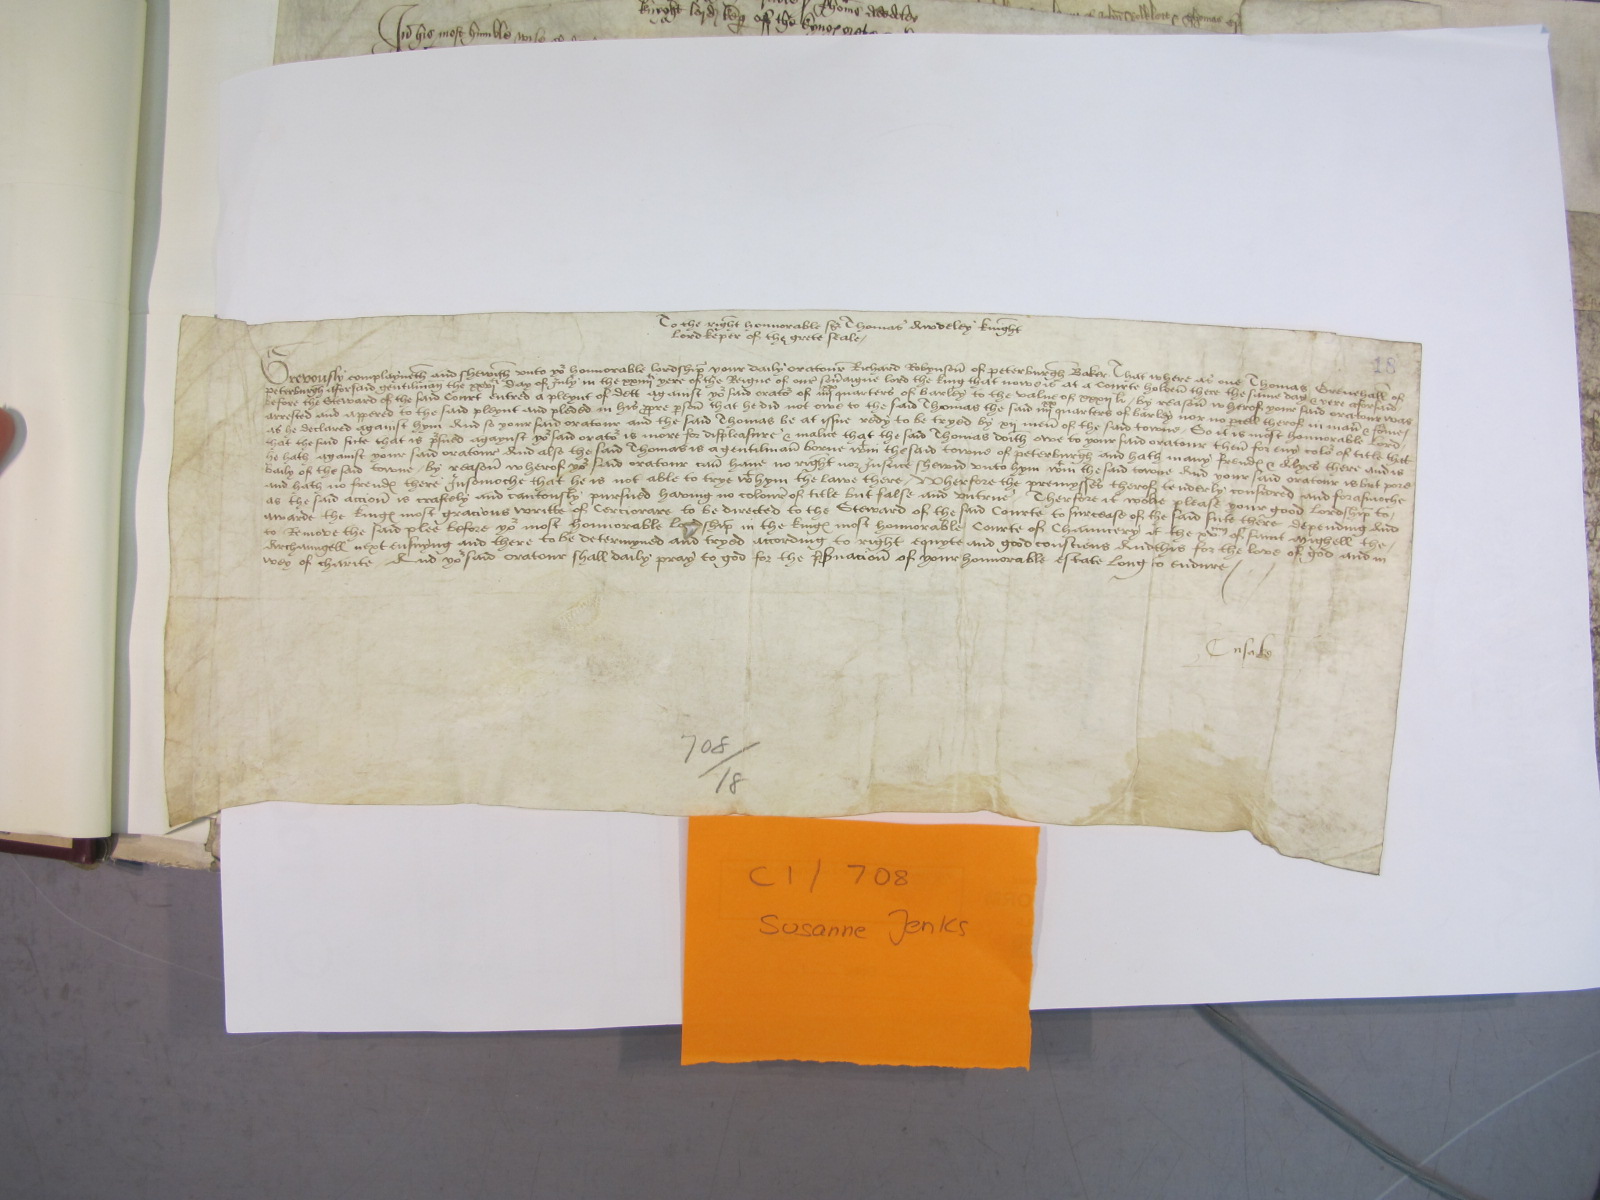 In his most humble wise
Knyght lord kep of the
Thoms Awdeley
To the right honnorable Sr Thomas Awdeley knight
Lord keper of the grete seale /
18
Grevously complayneth and shewith unto yor honnorable lordship your daily oratour Richard Robynson of peterburgh Baker That where as one Thomas Grenehall of
peterburgh aforsaid gentilman the xxvj day of July in the xxiiij yere of the Reigne of our sovraigne lord the king that nowe is at a Courte holden there the same day & yere aforsaid
before the Steward of the said Court entred a pleynt of dett against yor said orator of iiij quarters of barley to the value of xxxij li / by reason wherof your said oratour was
arrested and appered to the said pleynt and pleded in his propre pson that he did not owe to the said Thomas the said iiij quarters of barley nor no pcell therof in man & fourme
as he declared against hym And so your said oratour and the said Thomas be at issue redy to be tryed by xij men of the said towne / So it is most honnorable Lord /
that the said sute that is psued against yor said orator is more for displeasure & malice that the said Thomas doith owe to your said oratour then for eny colo of title that
he hath against your said oratour And also the said Thomas is a gentilman borne wtin the said towne of peterburgh and hath many frendes & Alyes there and is
Baily of the said towne / by reason wherof yor said oratour can have no right nor Justice shewid unto hym wtin the said towne And your said oratour is but pore
and hath no frendes there Insomoche that he is not able to trye wt hym the lawe there / Wherfore the premysses therof tenderly considred and forasmoche
as the said accion is craftely and cautously pursued having no colour of title but false and untrue / Therfore it wolde please your good Lordship to /
awarde the kinges most gracious writte of Cerciorare to be directed to the Steward of the said Courte to surcease of the said sute there depending And
to Remove the said plee before yor most honnorable Lordship in the kinges most honnorable Courte of Chauncery at the xvme of saint Mighell the /
Archaungell next ensuying and there to be determyned and tryed according to right equyte and good consciens And this for the love of god and in
wey of charite / And yor said oratour shall daily pray to god for the psvacion of your honnorable estate long to endure /
708/18
C1/ 708
Susanne Jenks